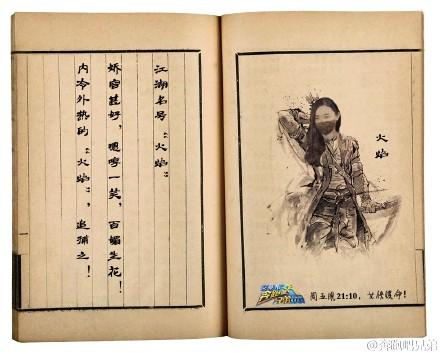 火焰
周五晚21:10,女侠饶命!
江湖名号:“火焰”
娇容甚好,嗯哼一笑,百媚生花!
内冷外热的“火焰”,追捕之!
@奔跑吧兄弟